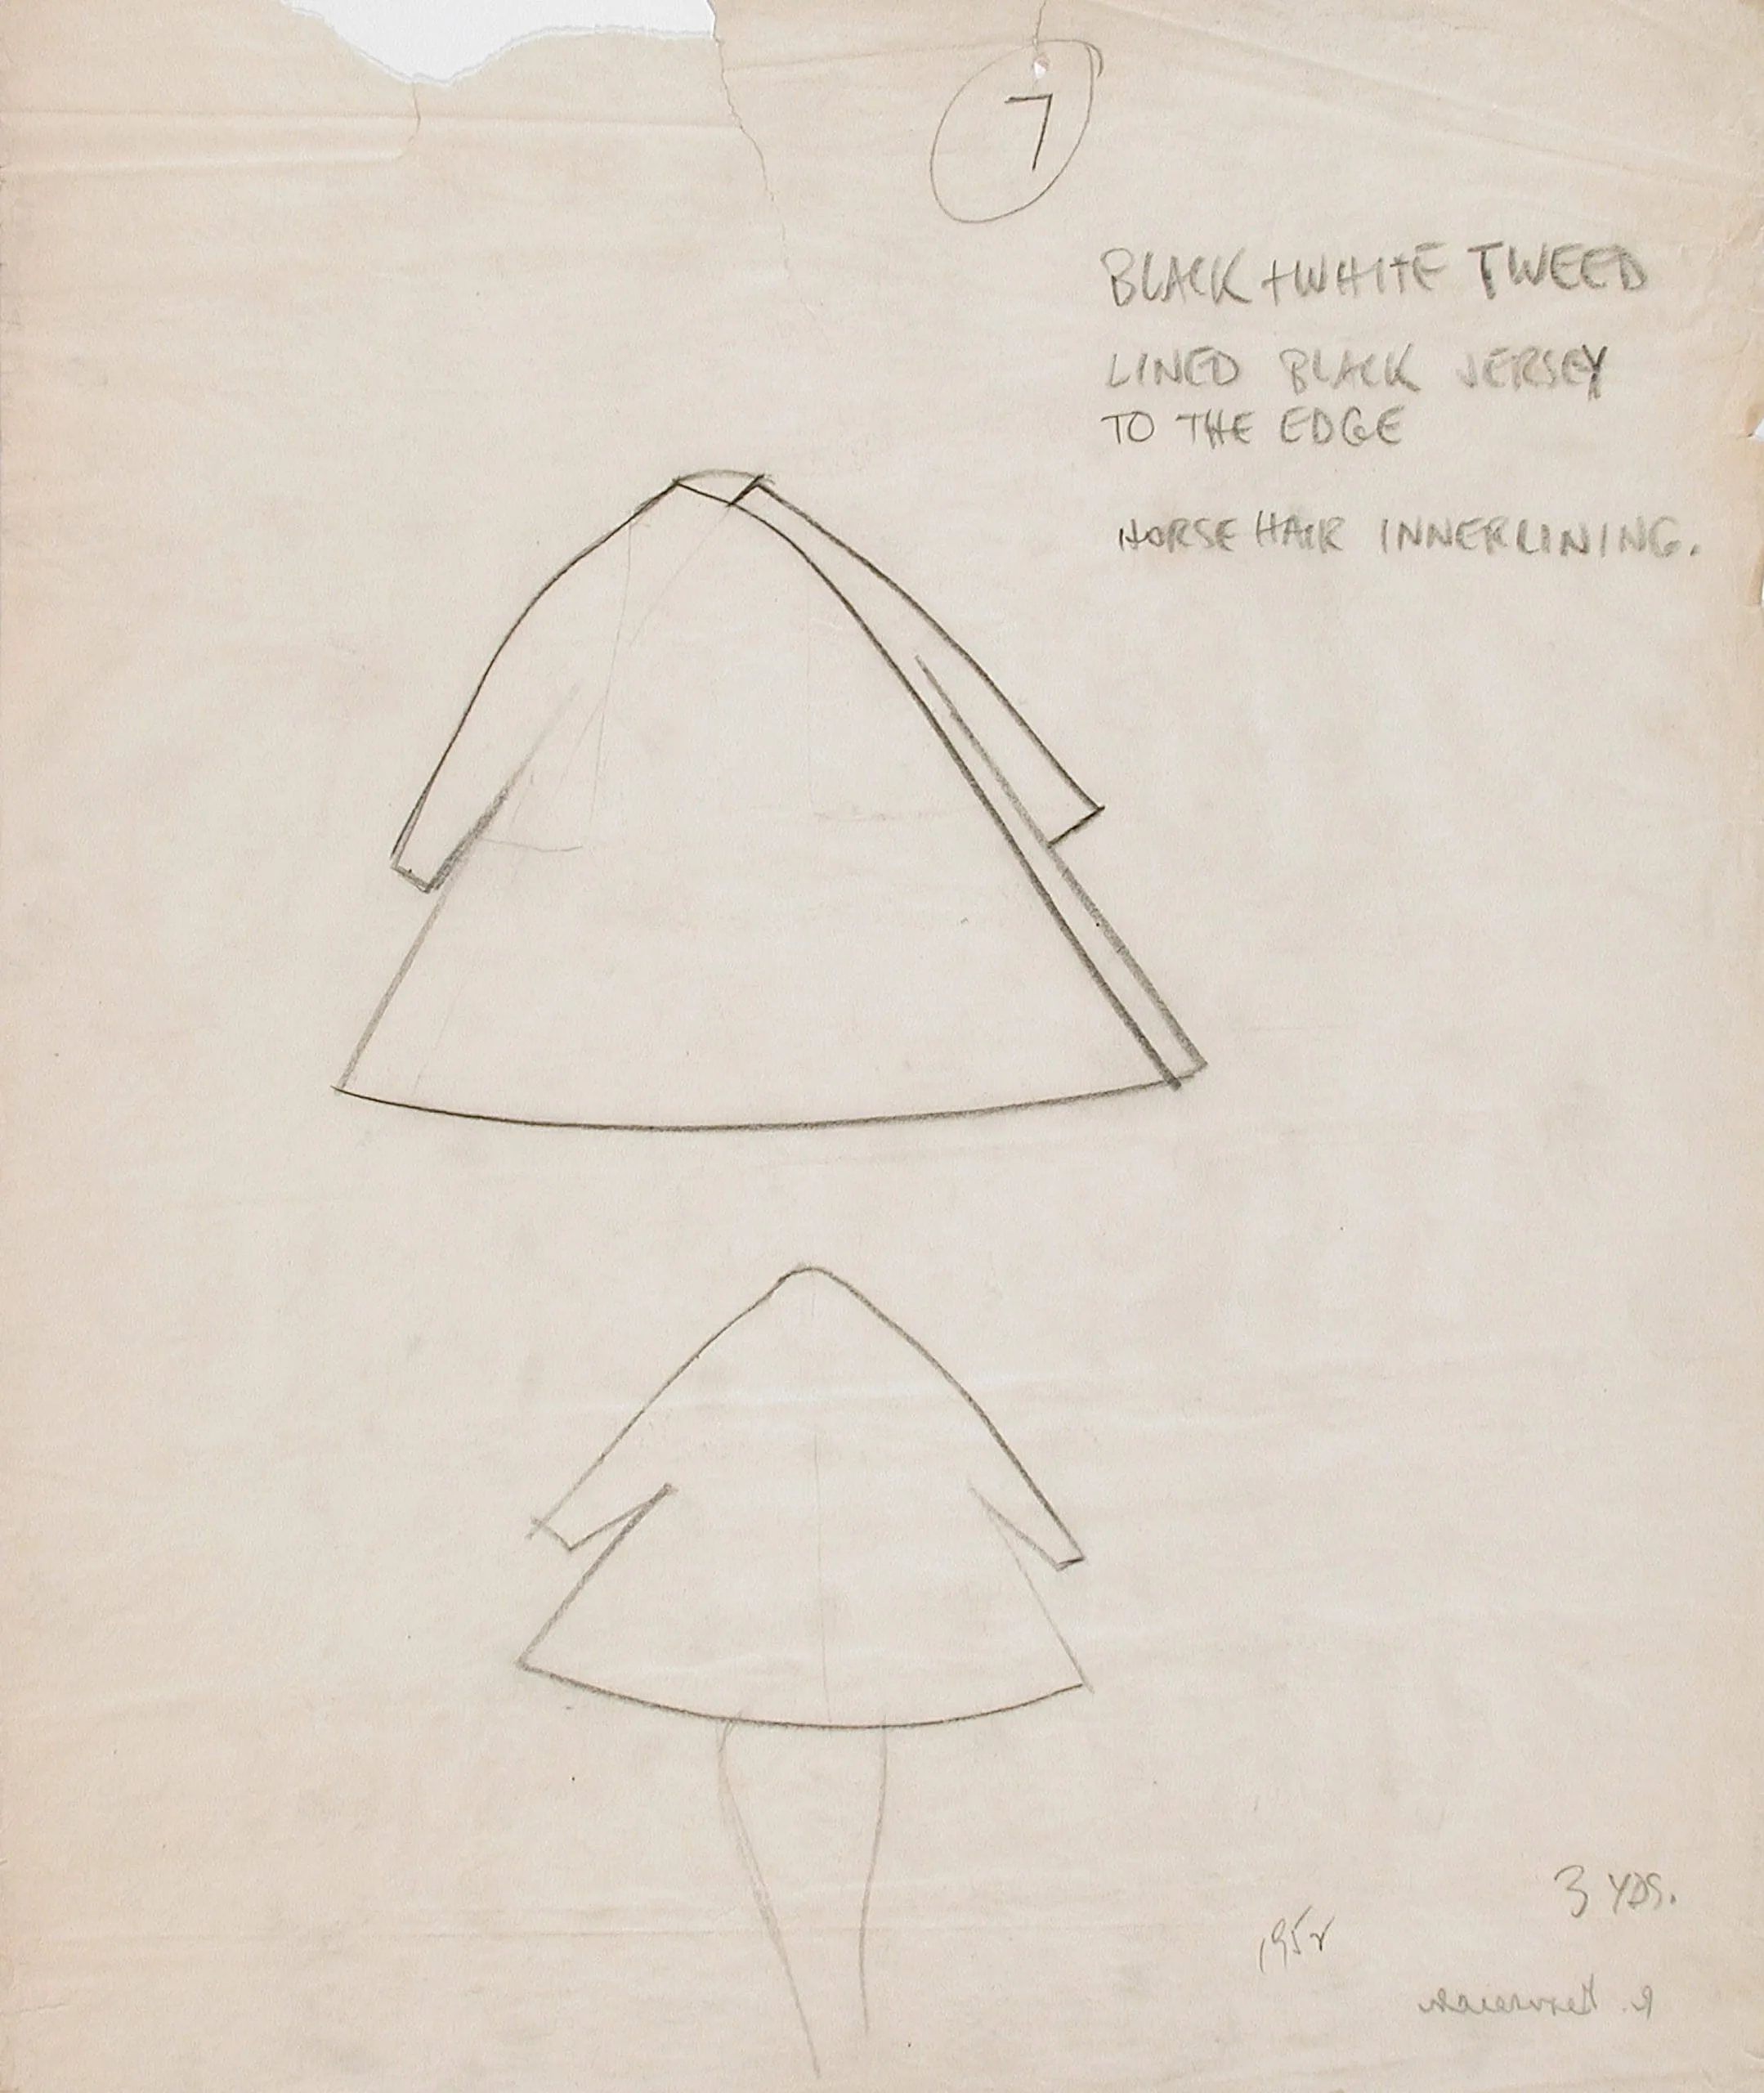 7
BLACK + WHITE TWEED
LINED BLACK JERSEY
TO THE EDGE
HORSE HAIR INNERLINING.
3 YDS.
1952
R.